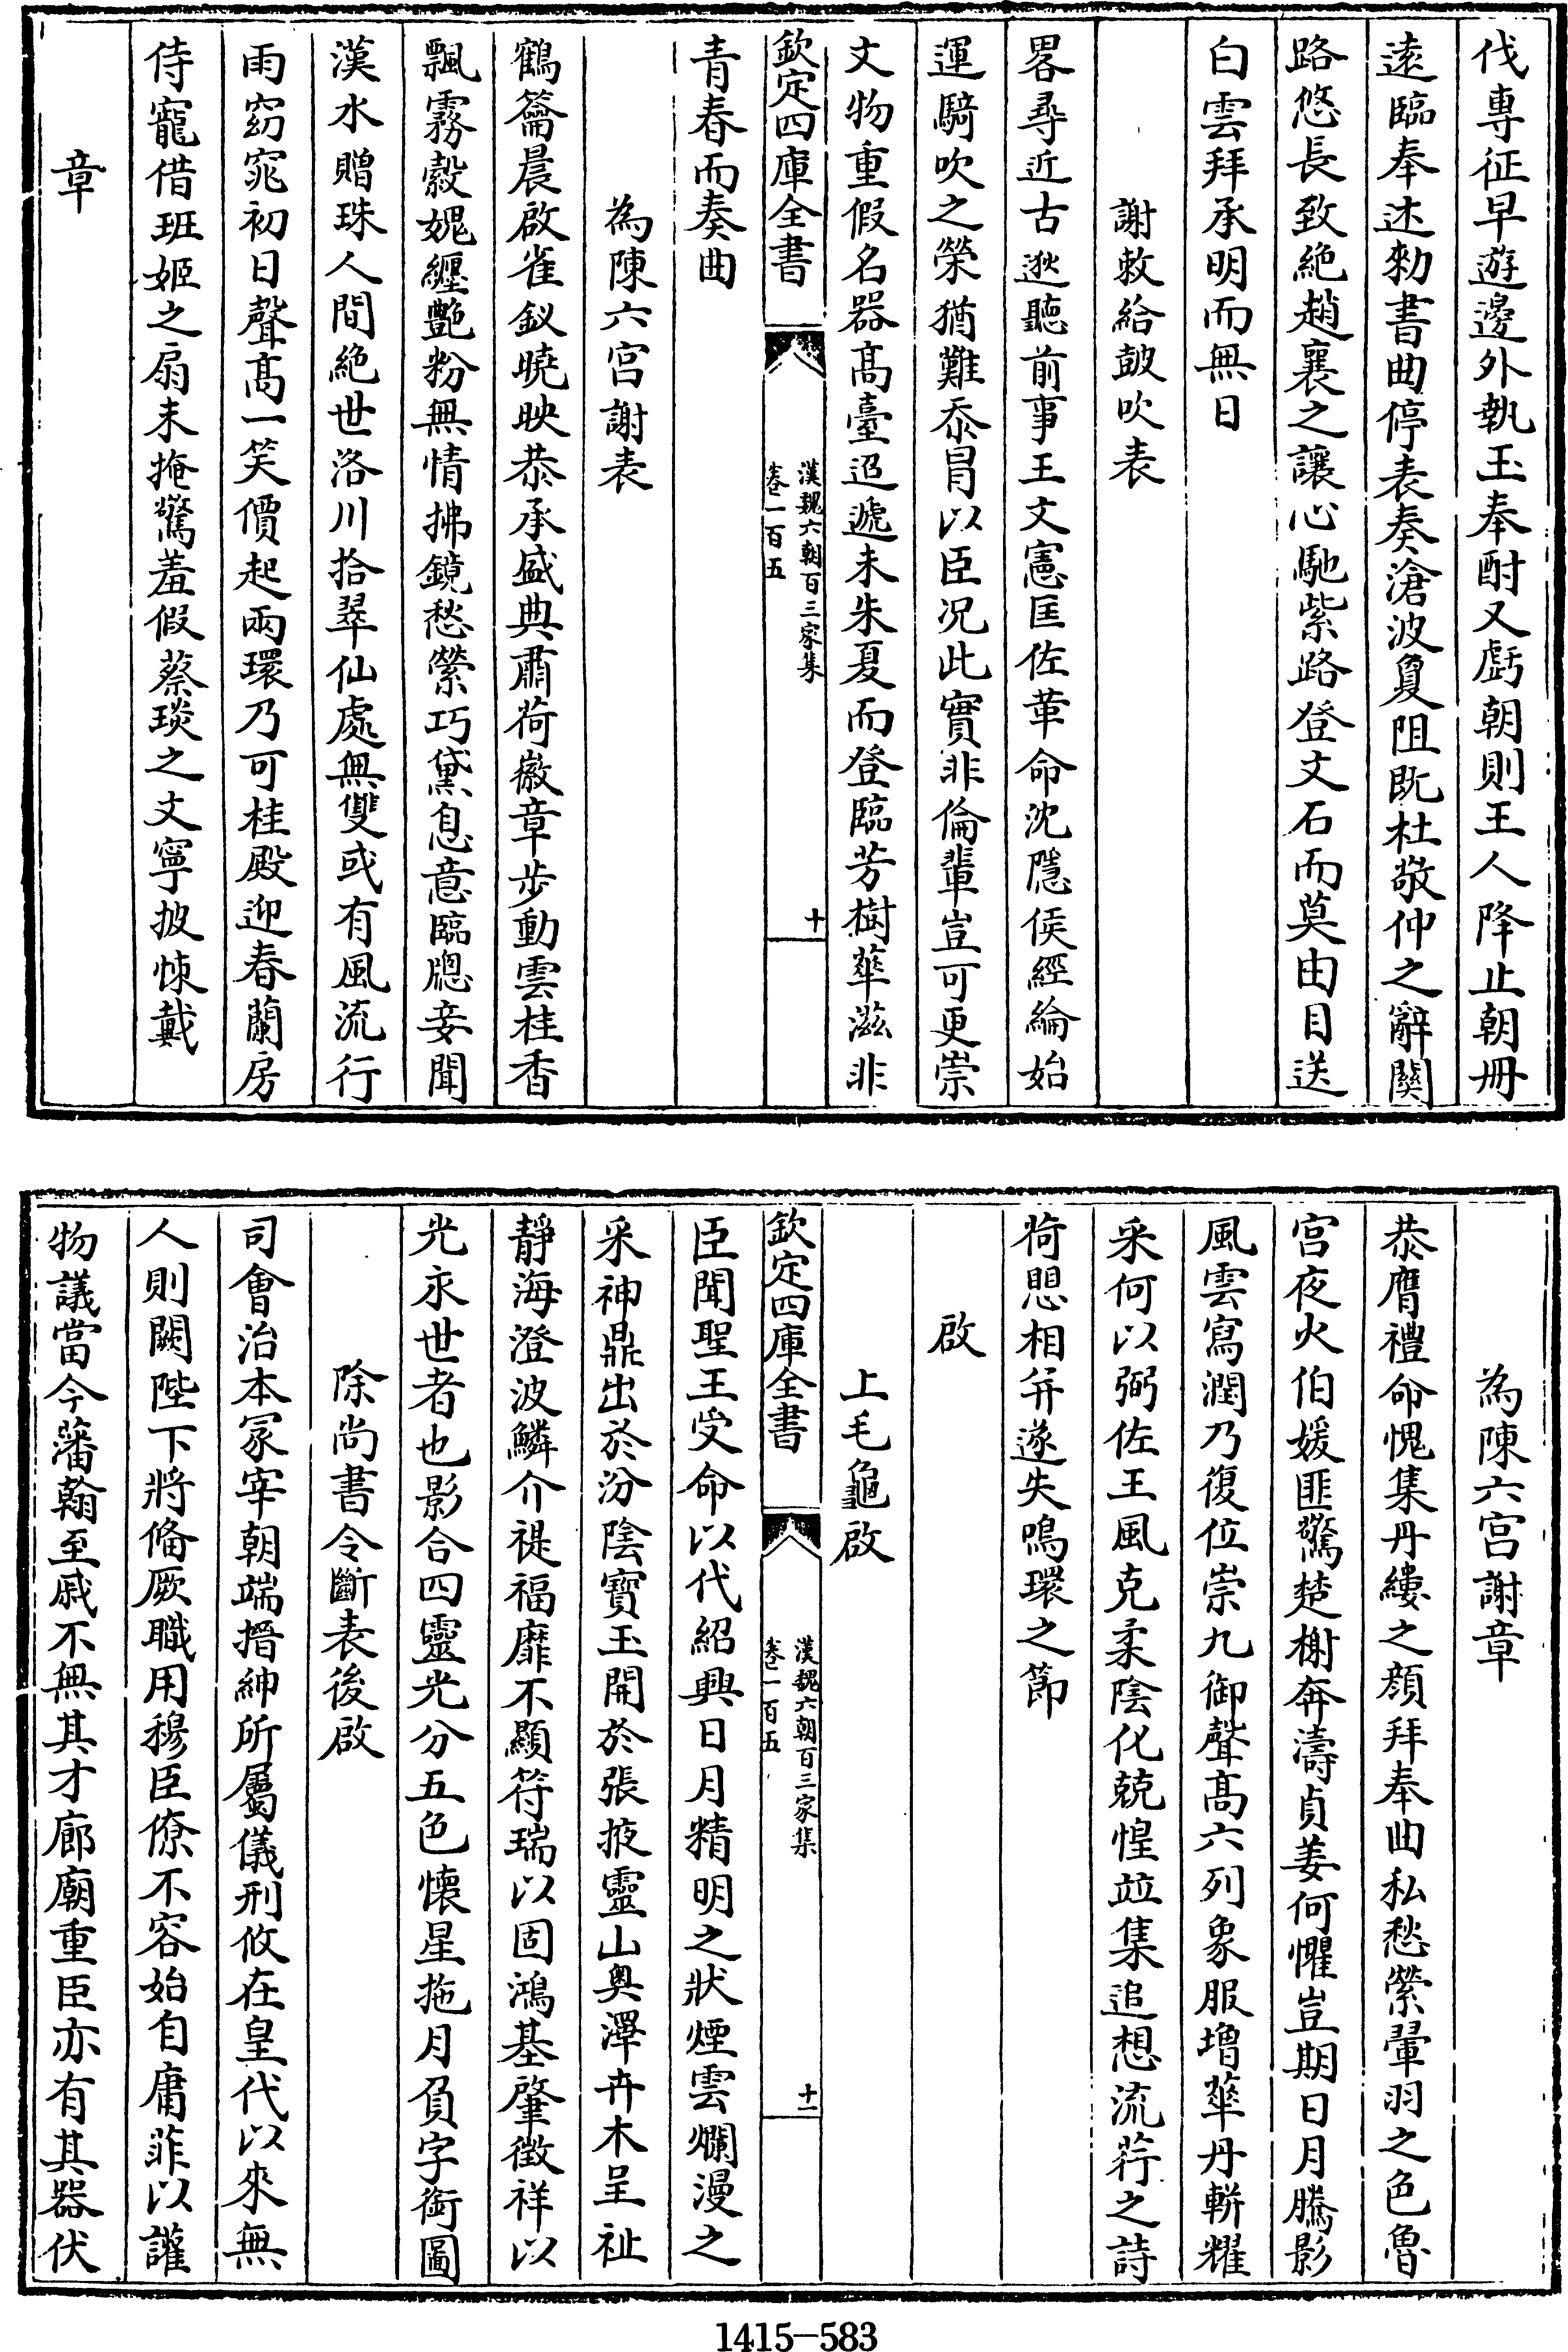 伐專征早遊邊外執玉奉酎又虧朝則王人降止朝冊
遠臨奉述勑書曲停表奏滄波敻阻既杜敬仲之辭關
路悠長致絶趙襄之讓心馳紫路登文石而莫由目送
白雲拜承明而無日
謝敕給鼓吹表
畧尋近古逖聽前事王文憲匡佐革命沈隱侯經綸始
運騎吹之榮猶難忝冒以臣况此實非倫輩豈可更崇
文物重假名器髙臺迢遞未朱夏而登臨芳樹華滋非
欽定四庫全書
漢魏六朝百三家集
卷一百五
十
青春而奏曲
為陳六宮謝表
鶴籥晨啟雀釵曉映恭承盛典肅荷徽章步動雲桂香
飄霧縠媿纏艶粉無情拂鏡愁縈巧黛息意臨牕妾聞
漢水贈珠人間絶世洛川拾翠仙處無雙或有風流行
雨窈窕初日聲髙一笑價起兩環乃可桂殿迎春蘭房
侍寵借班姬之扇未掩驚羞假蔡琰之文寧披悚戴
章
為陳六宮謝章
恭膺禮命愧集丹縷之顔拜奉曲私愁縈翬羽之色魯
宮夜火伯媛匪驚楚榭奔濤貞姜何懼豈期日月騰影
風雲寫潤乃復位崇九御聲髙六列象服増華丹軿耀
采何以弼佐王風克柔陰化兢惶竝集追想流荇之詩
荷恩相并遂失鳴環之節
啟
上毛龜啟
欽定四庫全書
漢魏六朝百三家集
卷一百五
十一
臣聞聖王受命以代紹興日月精明之狀煙雲爛漫之
采神鼎出於汾陰寶玉開於張掖靈山奥澤卉木呈祉
靜海澄波鱗介禔福靡不顯符瑞以固鴻基肇徴祥以
光永世者也影合四靈光分五色懐星拖月負字銜圖
除尚書令斷表後啟
司會治本冢宰朝端搢紳所屬儀刑攸在皇代以來無
人則闕陛下將脩厥職用穆臣僚不容始自庸菲以讙
物議當今藩翰至戚不無其才廊廟重臣亦有其器伏
1415-583